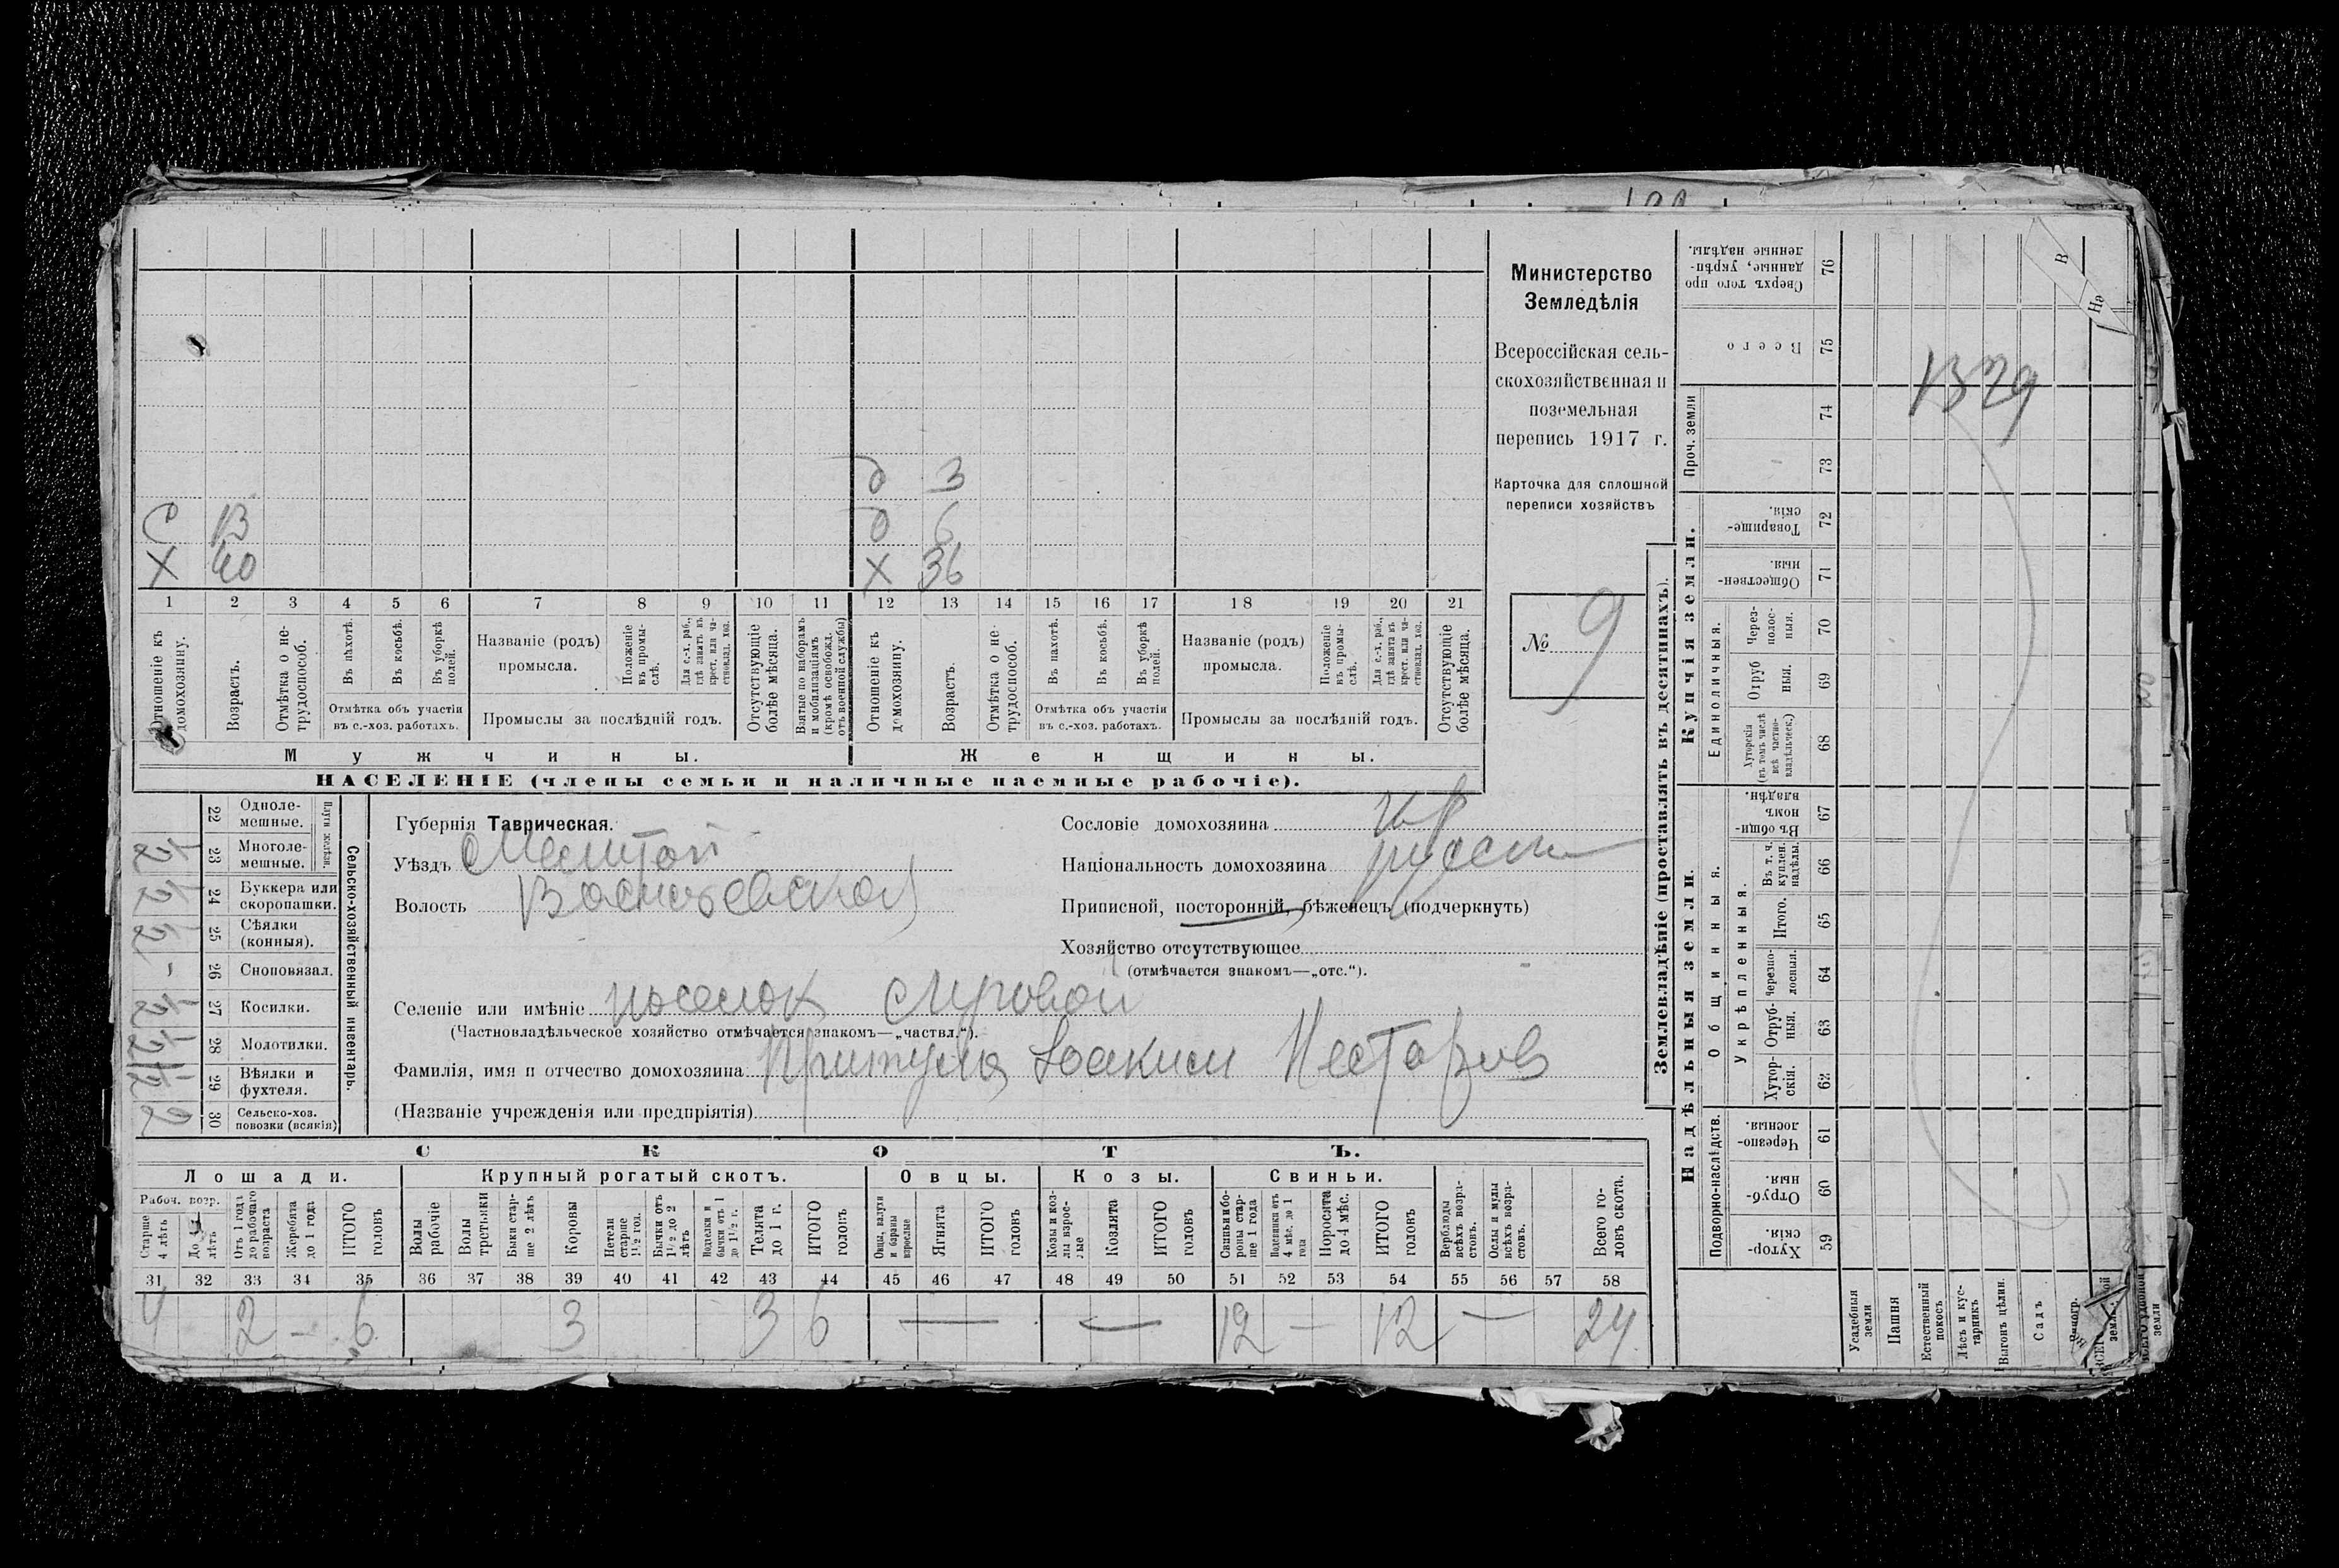 Министерство
Земледѣлія
Всероссійская сель-
скохозяйственная и
поземельная
перепись 1917 г.
Карточка для сплошной
переписи хозяйствъ
№ 9
д 3
С 13 д 6
Х 40 Х 36
1 2 3 4 5 6 7 8 9 10 11 12 13 14 15 16 17 18 19 20 21
Отношеніе къ домохозяину.
Возрастъ.
Отмѣтка о не-трудоспособ.
Въ пахотѣ.
Въ косьбѣ.
Въ уборкѣ полей.
Отмѣтка объ участіи въ с.-хоз. работахъ.
Названіе (родъ) промысла.
Положеніе въ промы-слѣ.
Для с.-х. раб., гдѣ занятъ въ крест. или ча-стновлад. хоз.
Промыслы за послѣдній годъ.
Отсутствующіе болѣе мѣсяца.
Взятые по наборамъ и мобилизаціямъ (кромѣ освобожд. отъ военной службы)
Отношеніе къ домохозяину.
Возрастъ.
Отмѣтка о не-трудоспособ.
Въ пахотѣ.
Въ косьбѣ.
Въ уборкѣ полей.
Отмѣтка объ участіи въ с.-хоз. работахъ.
Названіе (родъ) промысла.
Положеніе въ промы-слѣ.
Для с.-х. раб., гдѣ занята въ крест. или ча-стновлад. хоз.
Промыслы за послѣдній годъ.
Отсутствующіе болѣе мѣсяца.
Мужчины. Женщины.
НАСЕЛЕНІЕ (члены семьи и наличные наемные рабочіе).
Сельско-хозяйственный инвентарь.
Плуги желѣзн.
22 Одноле-мешные.
23 Многоле-мешные.
24 Буккера или скоропашки.
25 Сѣялки (конныя).
26 Сноповязал. -
27 Косилки.
28 Молотилки.
29 Вѣялки и фухтеля.
30 Сельско-хоз. повозки (всякія) 2
Губернія Таврическая.
Уѣздъ Мелитоп
Волость Васильевская
Сословіе домохозяина
Національность домохозяина русск
Приписной, посторонній, бѣженецъ (подчеркнуть)
Хозяйство отсутствующее
(отмѣчается знакомъ—„отс.“).
Селеніе или имѣніе поселок Мировой
(Частновладѣльческое хозяйство отмѣчается знакомъ—„частвл.“).
Фамилія, имя и отчество домохозяина Притула Іоаким Несторов
(Названіе учрежденія или предпріятія)
СКОТЪ.
Лошади. Крупный рогатый скотъ. Овцы. Козы. Свиньи.
Рабоч. возр.
Старше 4 лѣтъ
До 4 лѣтъ
Отъ 1 года до рабочаго возраста
Жеребята до 1 года
ИТОГО головъ
Волы рабочіе
Волы третьяки
Быки стар-ше 2 лѣтъ
Коровы
Нетели старше 1½ год.
Бычки отъ 1½ до 2 лѣтъ
Подтелки и бычки отъ 1 до 1½ г.
Телята до 1 г.
ИТОГО головъ
Овцы, валухи и бараны взрослые
Ягнята
ИТОГО головъ
Козы и коз-лы взрос-лые
Козлята
ИТОГО головъ
Свиньи и бо-ровы стар-ше 1 года
Подсвинки отъ 4 мѣс. до 1 года
Поросята до 4 мѣс.
ИТОГО головъ
Верблюды всѣхъ возра-стовъ.
Ослы и мулы всѣхъ возра-стовъ.
Всего го-ловъ скота.
31 32 33 34 35 36 37 38 39 40 41 42 43 44 45 46 47 48 49 50 51 52 53 54 55 56 57 58
4 2 – 6 3 3 6 — — 12 — 12 — 24
Землевладѣніе (проставлять въ десятинахъ).
Купчія земли.
Надѣльныя земли.
Сверхъ того про-данные, укрѣп-ленные надѣлы. 76
Всего 75
Проч. земли 74 73
Товарище-скія. 72
Обществен-ныя. 71
Единоличныя.
Через-полос-ныя. 70
Отруб-ныя. 69
Хуторскія (въ томъ числѣ всѣ частно-владѣльческ.) 68
Общинныя.
Въ общи-номъ владѣн. 67
Укрѣпленныя.
Въ т. ч. куплен. надѣлы. 66
Итого. 65
Черезпо-лосныя. 64
Отруб-ныя. 63
Хутор-скія. 62
Подворно-наслѣдств.
Черезпо-лосныя. 61
Отруб-ныя. 60
Хутор-скія. 59
Усадебныя земли
Пашня
Естественный покосъ
Лѣсъ и кус-тарникъ
Выгонъ цѣлин.
Садъ